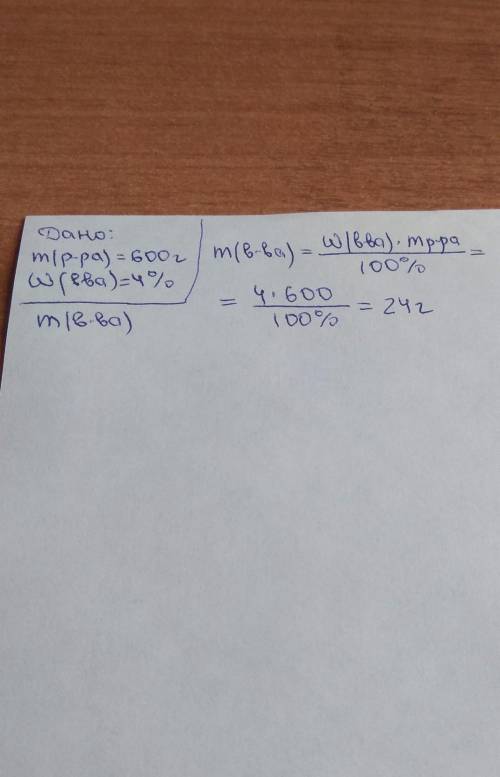 Дано:
m(р-ра) = 600г
W(вва)=4%
m(в-ва)
m(в-ва) = W(вва)·mр-ра =
100%
= 4·600 = 24г
100%